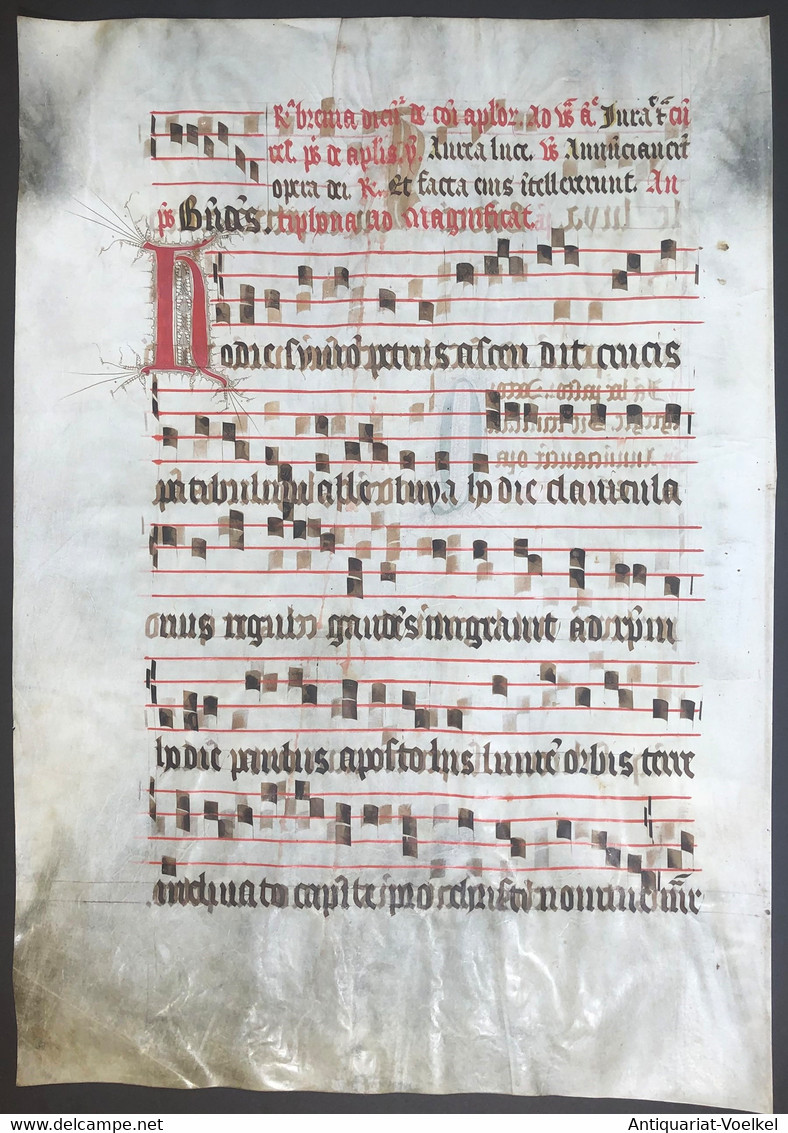 R. brevia dicūt̃ de cōi aplor. Ad vs̃ ā Jurauit cū
rel. ps̃ de aplis. ỹ. Aurea luce. Vs̃ Annūciauerūt
opera dei. R. Et facta eius ītellexerunt. An
ps̃ Gūdēs. tiphona ad magnificat.
Hodie symō petrus ascen dit crucis
patibulum alleluya hodie clauicula
rius regni gaudēs migrauit ad xp̄m
hodie paulus apostolus lumē orbis terre
inclinato capite pro christi nomine m̄r
Antiquariat-Voelkel